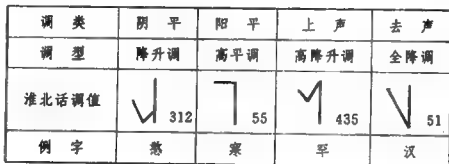 调 类 阴 平 阳 平 上 声 去 声
调 型 降升调 高平调 高降升调 全降调
淮北话调值 312 55 435 51
例 字 憨 寒 罕 汉